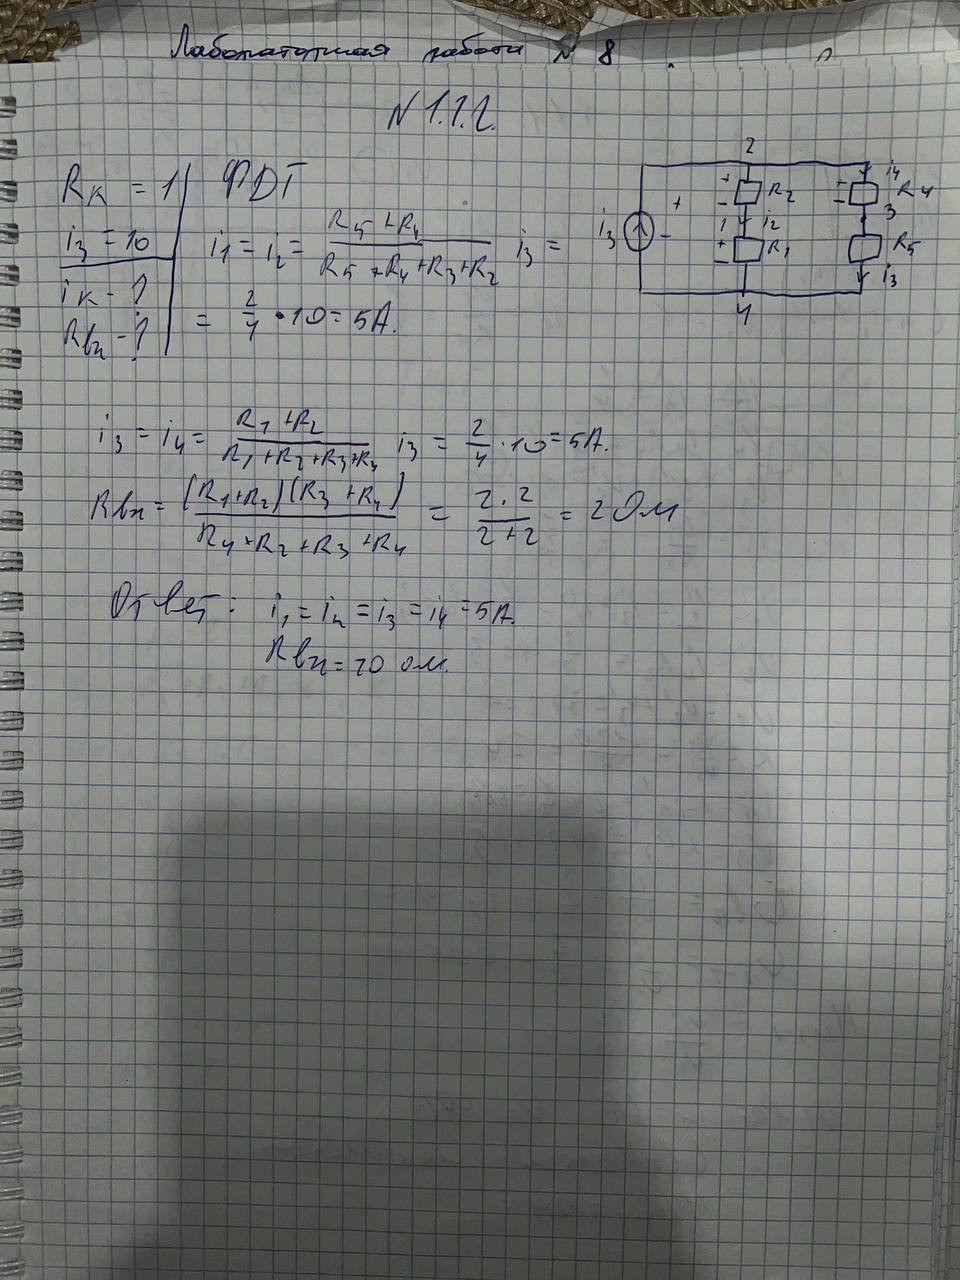 Лабораторная работа N 8
N 1.1.2.
Rк = 1
ФДТ
i3 = 10
iк - ?
Rвх - ?
i1 = i2 = (R5 + R4)/(R5 + R4 + R3 + R2) i3 =
= 2/4 · 10 = 5А.
2
+ R2
-
1 i2
+ R1
-
4
i3
+
-
i4
+ R4
-
3
R5
i3
i3 = i4 = (R1 + R2)/(R1 + R2 + R3 + R4) i3 = 2/4 · 10 = 5А.
Rвх = (R1 + R2)(R3 + R4)/(R1 + R2 + R3 + R4) = 2·2/2+2 = 2 Ом
Ответ: i1 = i2 = i3 = i4 = 5А.
Rвх = 20 ом.